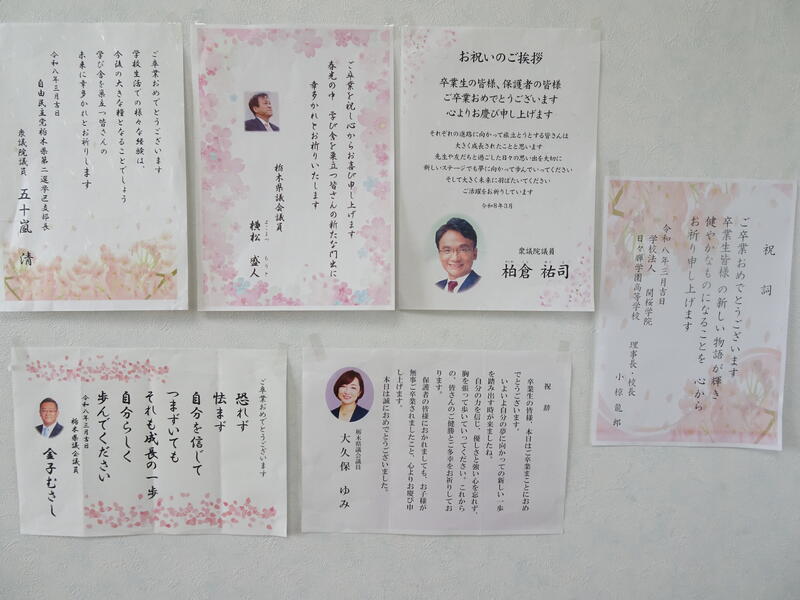 ご卒業おめでとうございます
学校生活での様々な経験は、
今後の大きな糧となることでしょう
学び舎を巣立つ皆さんの
未来に幸多かれとお祈りします
令和八年三月吉日
自由民主党栃木県第二選挙区支部長
衆議院議員 五十嵐 清
ご卒業を祝し心からお喜び申し上げます
春光の中 学び舎を巣立つ皆さんの新たな門出に
幸多かれとお祈りいたします
栃木県議会議員
横松 盛人
よこまつ もりと
お祝いのご挨拶
卒業生の皆様、保護者の皆様
ご卒業おめでとうございます
心よりお慶び申し上げます
それぞれの進路に向かって旅立とうとする皆さんは
大きく成長されたことと思います
先生や友だちと過ごした日々の思い出を大切に
新しいステージでも夢に向かって歩んでいってください
そして大きく未来に羽ばたいてください
ご活躍をお祈りしています
令和8年3月
衆議院議員
柏倉 祐司
祝詞
ご卒業おめでとうございます
卒業生皆様の新しい物語が輝き
健やかなものになることを 心から
お祈り申し上げます
令和八年三月吉日
学校法人 関桜学院
日々輝学園高等学校
理事長・校長
小椋 龍郎
ご卒業おめでとうございます
恐れず
怯まず
自分を信じて
つまずいても
それも成長の一歩
自分らしく
歩んでください
令和八年三月吉日
栃木県議会議員
金子むさし
祝辞
卒業生の皆様、本日はご卒業まことにおめ
でとうございます。
いよいよ自分の夢に向かっての新しい一歩
を踏み出す時が来ましたね。
自分の力を信じ、優しさと強い心を忘れず、
胸を張って歩いていってください。これから
の、皆さんのご健勝とご多幸をお祈りしてお
ります。
保護者の皆様におかれましても、お子様が
無事ご卒業されましたこと、心よりお慶び申
し上げます。
本日は誠におめでとうございました。
栃木県議会議員
大久保 ゆみ